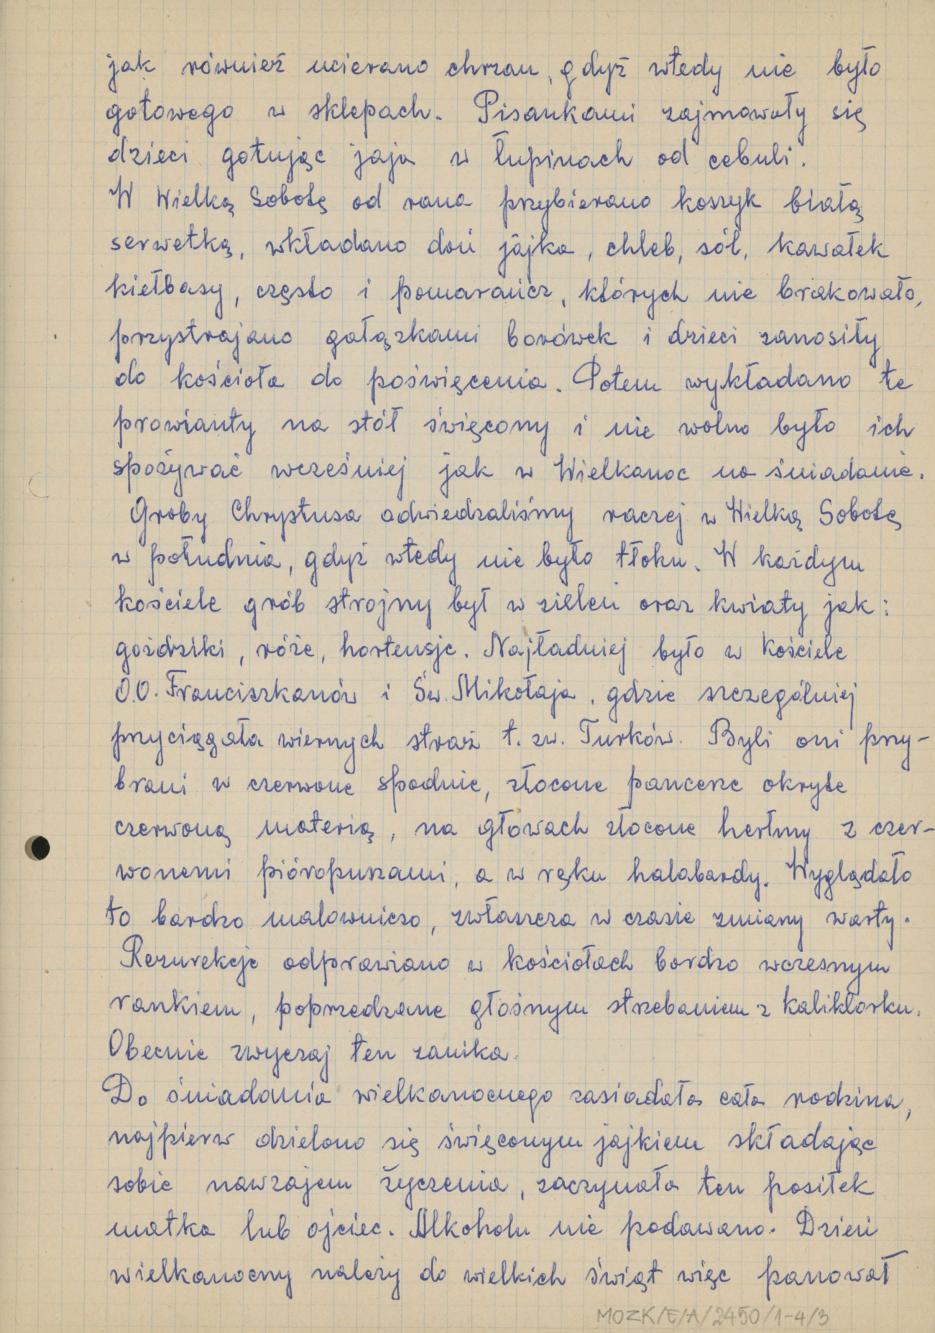 jak również ucierano chrzan, gdyż wtedy nie było
gotowego w sklepach. Pisankami zajmowały się
dzieci gotując jaja w łupinach od cebuli.
W Wielką Sobotę od rana przybierano koszyk białą
serwetką, wkładano doń jajka, chleb, sól, kawałek
kiełbasy, często i pomarańcz, których nie brakowało,
przystrajano gałązkami borówek i dzieci zanosiły
do kościoła do poświęcenia. Potem wykładano te
prowianty na stół święcony i nie wolno było ich
spożywać wcześniej jak w Wielkanoc na śniadanie.
Groby Chrystusa odwiedzaliśmy raczej w Wielką Sobotę
w południa, gdyż wtedy nie było tłoku. W każdym
kościele grób strojny był w zieleń oraz kwiaty jak:
goździki, róże, hortensje. Najładniej było w Kościele
O.O. Franciszkanów i Św. Mikołaja, gdzie szczególniej
przyciągała wiernych straż t. zw. Turków. Byli oni przy-
brani w czerwone spodnie, złocone pancerze okryte
czerwoną materią, na głowach złocone hełmy z czer-
wonemi pióropuszami, a w ręku halabardy. Wyglądało
to bardzo malowniczo, zwłaszcza w czasie zmiany warty.
Rezurekcje odprawiano w kościołach bardzo wczesnym
rankiem, poprzedzane głośnym strzelaniem z kaliklorku.
Obecnie zwyczaj ten zanika.
Do śniadania wielkanocnego zasiadała cała rodzina,
najpierw dzielono się święconym jajkiem składając
sobie nawzajem życzenia, zaczynała ten posiłek
matka lub ojciec. Alkoholu nie podawano. Dzień
wielkanocny należy do wielkich świąt więc panował
MOZK/E/A/2450/1-4/3